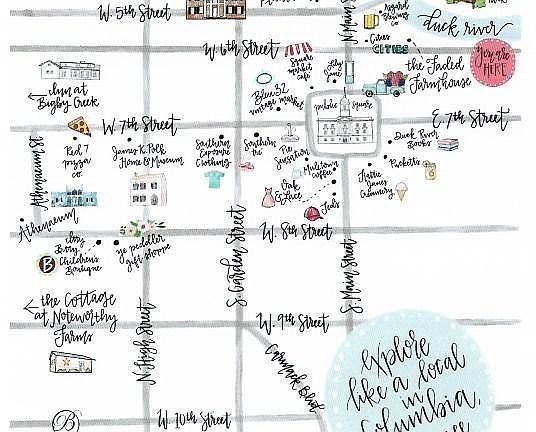 W. 5th Street
N. Main S
Asgard
Brewing
Co.
duck river
W. 6th Street
Square
market
Cafe
Lily
Jane
Cities
CITIES
the Faded
Farmhouse
You are
HERE
Inn at
Bigby Creek
Blue 32
vintage market
public square
W. 7th Street
E. 7th Street
Athenaeum St
Red 7
pizza
co.
James K. Polk
Home & Museum
Southern
Exposure
Clothing
Southern
Tre
Pie
Sensation
Muletown
coffee
Duck River
Books
Puckett's
Hattie
Jane's
Creamery
Oak
& Lace
Ted's
Athenaeum
W. 8th Street
Itty
Bitty
Children's
Boutique
B
ye peddler
gift shoppe
S. Garden Street
S. Main Street
the Cottage
at Noteworthy
Farms
N. High Street
W. 9th Street
Carmack Blvd
explore
like a local
in
Columbia,
B
W. 10th Street